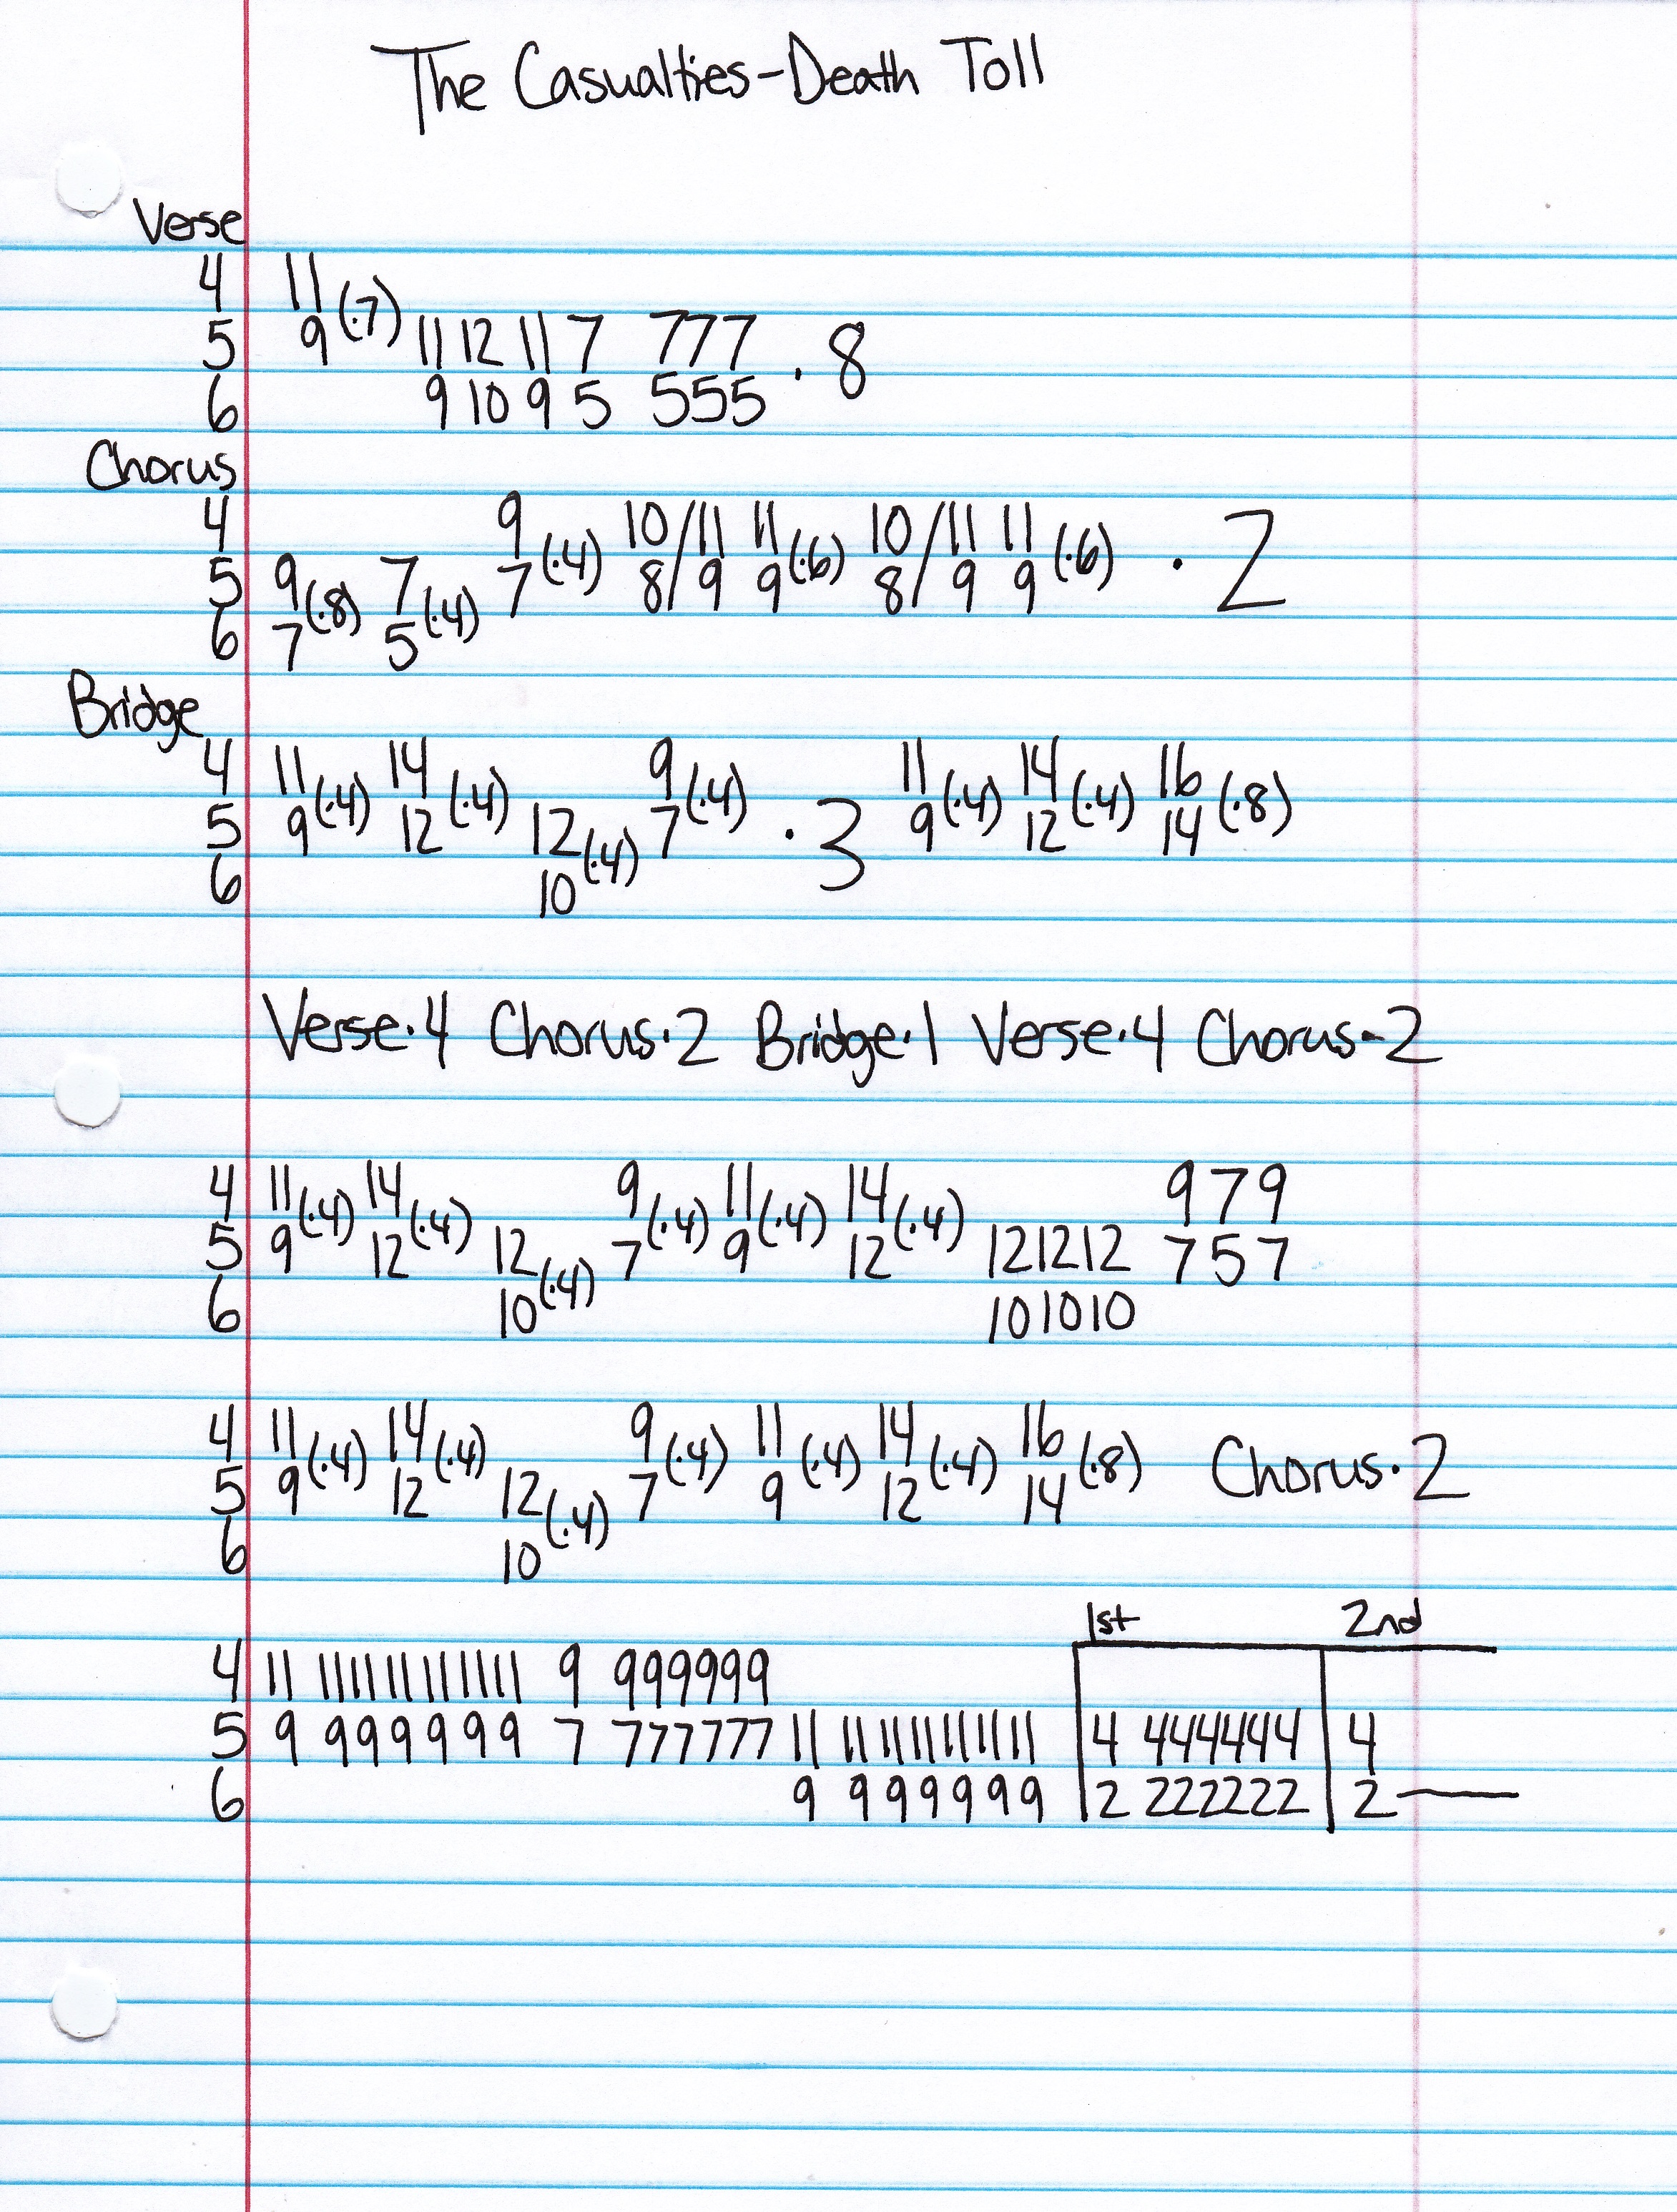 The Casualties-Death Toll
Verse
4 11
5 9 (·7) 11 12 11 7 777 · 8
6 9 10 9 5 555
Chorus
4 9 10/11 11 10/11 11
5 9 7 7 (·4) 8/9 9 (·6) 8/9 9 (·6) · 2
6 7 (·8) 5 (·4)
Bridge
4 11 14 9 11 14 16
5 9 (·4) 12 (·4) 12 7 (·4) · 3 9 (·4) 12 (·4) 14 (·8)
6 10 (·4)
Verse·4 Chorus·2 Bridge·1 Verse·4 Chorus-2
4 11 14 9 11 14 9 7 9
5 9 (·4) 12 (·4) 12 7 (·4) 9 (·4) 12 (·4) 12 12 12 7 5 7
6 10 (·4) 10 10 10
4 11 14 9 11 14 16
5 9 (·4) 12 (·4) 12 7 (·4) 9 (·4) 12 (·4) 14 (·8) Chorus·2
6 10 (·4)
1st 2nd
4 11 11 11 11 11 11 11 9 999999
5 9 9 9 9 9 9 9 7 777777 11 11 11 11 11 11 11 4 444444 4
6 9 9 9 9 9 9 9 2 222222 2